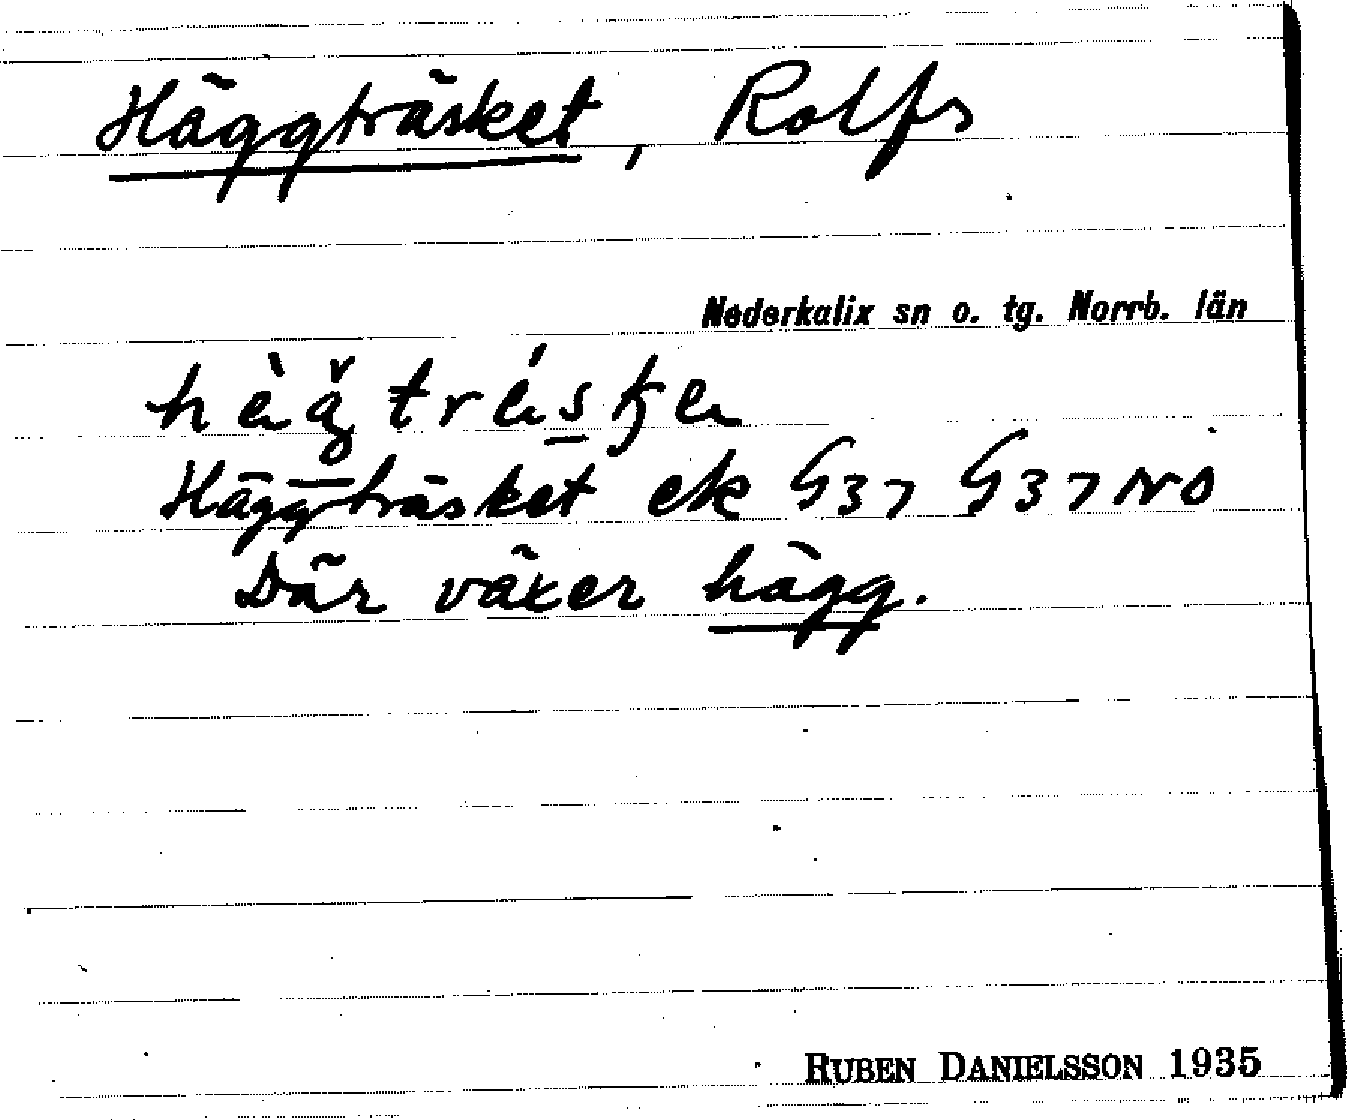 Häggträsket, Rolfs
Nederkalix sn o. tg. Norrb. län
Häggträsket ek G37 G37 NO
Där växer hägg.
RUBEN DANIELSSON 1935